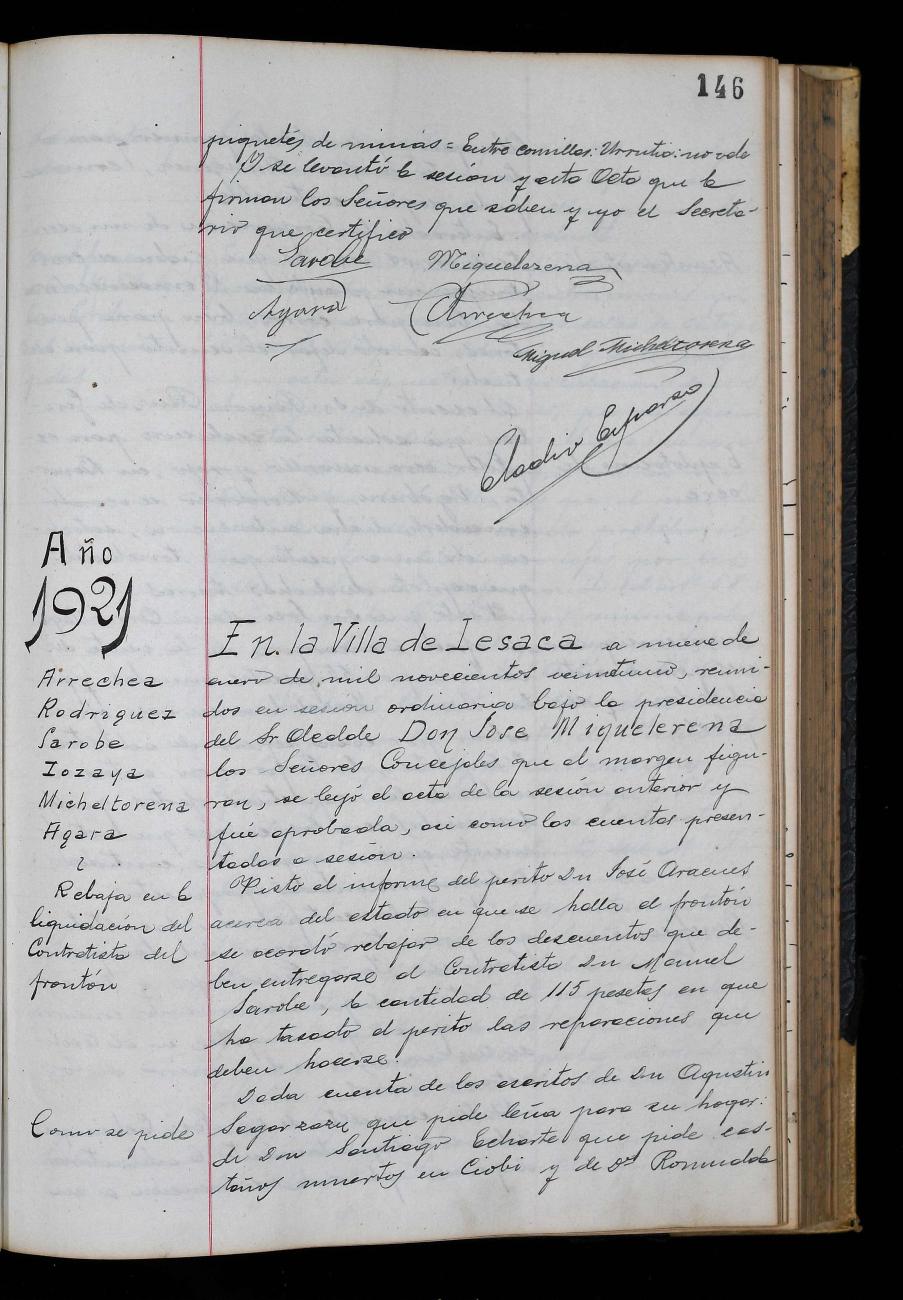 146
piquetés de minas = Entre comillas: Urrutia: no vale
Y se levantó la sesión y esta Acta que la
firman los Señores que saben y yo el Secreta-
rio que certifico
Sarobe Miquelerena
Agara Arrechea
Miguel Micheltorena
Eladio Esparza
Año
1921
Arrechea
Rodriguez
Sarobe
Tozaya
Micheltorena
Agara
En la Villa de Lesaca a nueve de
enero de mil novecientos veintiuno, reuni-
dos en sesión ordinaria bajo la presidencia
del Sr Alcalde Don Jose Miquelerena
los Señores Concejales que al margen figu-
ran, se leyó el acta de la sesión anterior y
fué aprobada, asi como las cuentas presen-
tadas a sesión.
Rebaja en la
liquidación del
Contratista del
frontón
Visto el informe del perito Dn José Aracues
acerca del estado en que se halla el frontón
se acordó rebajar de los descuentos que de-
ben entregarse al Contratista Dn Manuel
Sarobe, la cantidad de 115 pesetas en que
ha tasado el perito las reparaciones que
deben hacerse.
Como se pide
Dada cuenta de los escritos de Dn Agustin
Sagarzazu que pide leña para su hogar:
de Dn Santiago Echarte que pide cas-
taños muertos en Ciobi y de Dª Romualda